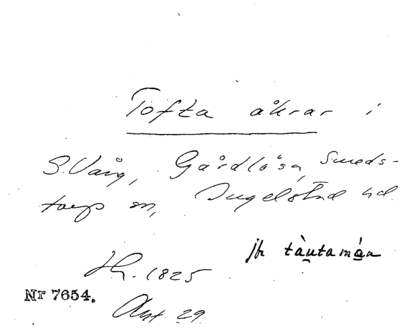 Tofta åkrar i
S. Vång, Gårdlösa, Smeds-
torp sn, Ingelstad hd
jfr tàutamá̱n
Hh. 1825
Nr 7654.
Akt 29